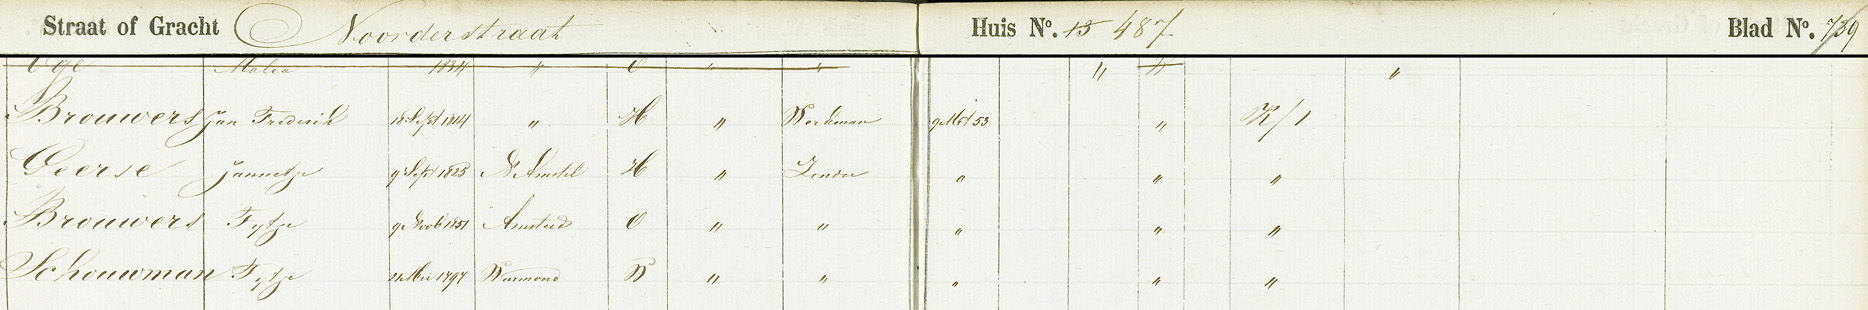 Straat of Gracht Noorderstraat Huis No. 15 487 Blad No. 739
Maria 1844 " O " " " " "
Brouwers Jan Frederik 18 Sept 1814 " H " Werkman 9 Mrt 53 " K/1
Geerse Jannetje 9 Sept 1823 N Amstel H " Zonder " " "
Brouwers Fytje 9 Novb 1851 Amsterd O " " " " "
Schouwman Fytje 1797 Warmond W " " " " "